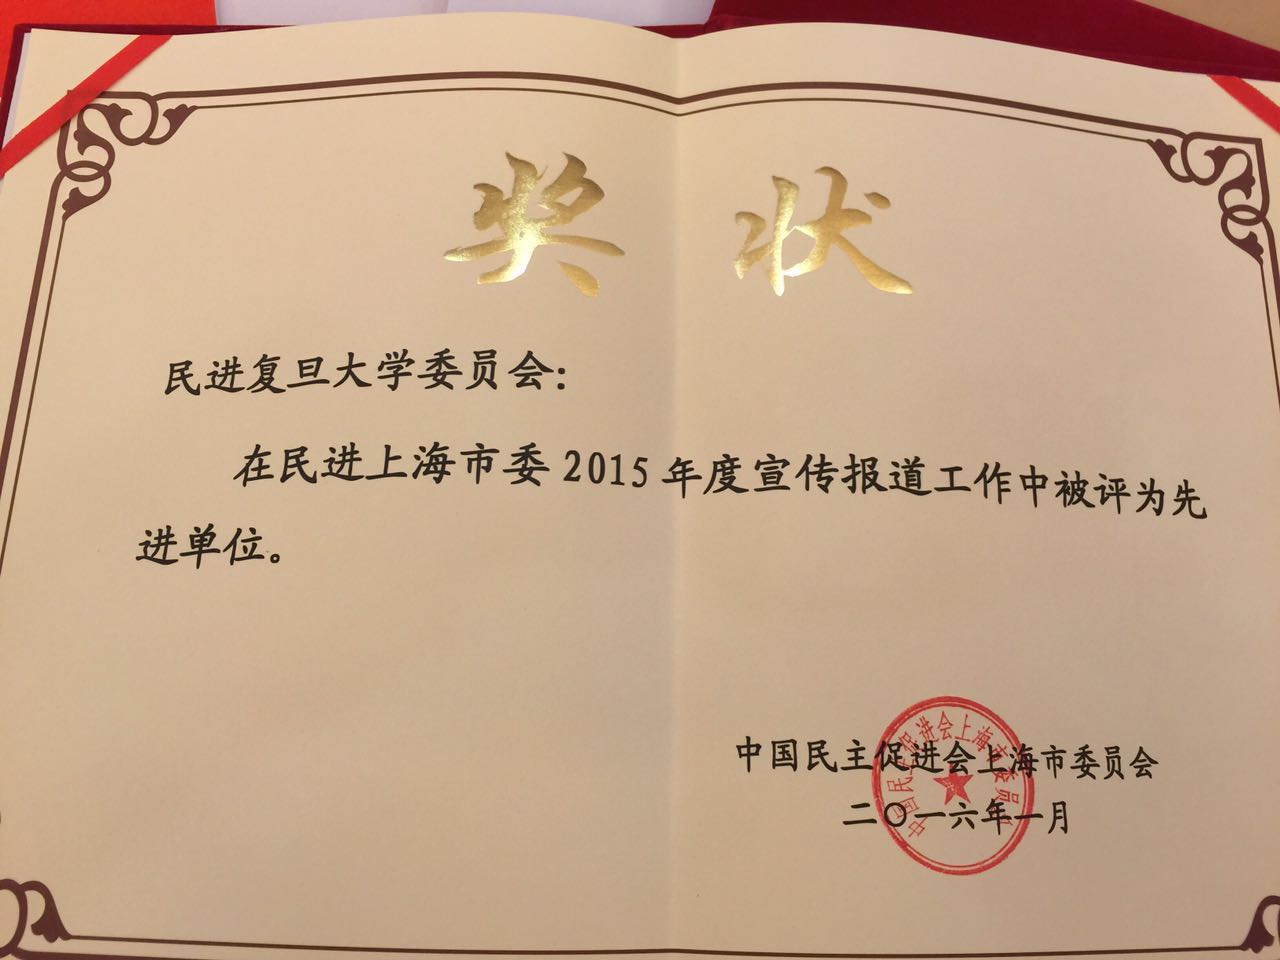 奖 状
民进复旦大学委员会：
在民进上海市委 2015 年度宣传报道工作中被评为先
进单位。
中国民主促进会上海市委员会
二〇一六年一月
中国民主促进会上海市委员会